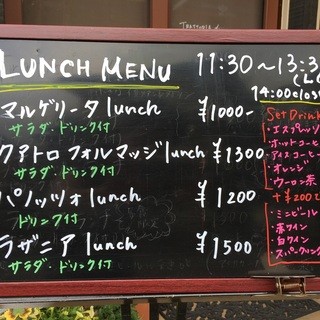 TRATTORIA
LUNCH MENU 11:30～13:3
14:00close
マルゲリータ lunch ¥1000-
サラダ・ドリンク付
クアトロ フォルマッジ lunch ¥1300
サラダ・ドリンク付
パノッツォ lunch ¥1200
ドリンク付
ラザニア lunch ¥1500
サラダ・ドリンク付
Set Drink
・エスプレッソ
・ホットコーヒ
・アイスコーヒ
・オレンジ
・ウーロン茶
+¥200で
・ミニビール
・赤ワイン
・白ワイン
・スパークリング